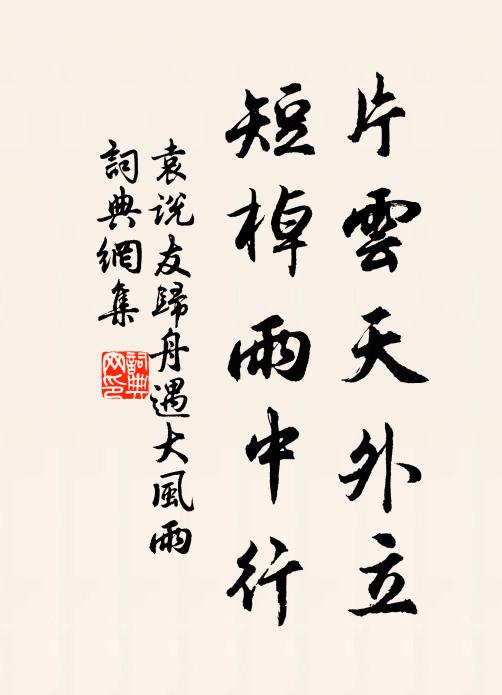 片雲天外立
短棹雨中行
袁说友歸舟遇大風雨
詞典網集
詞典网印